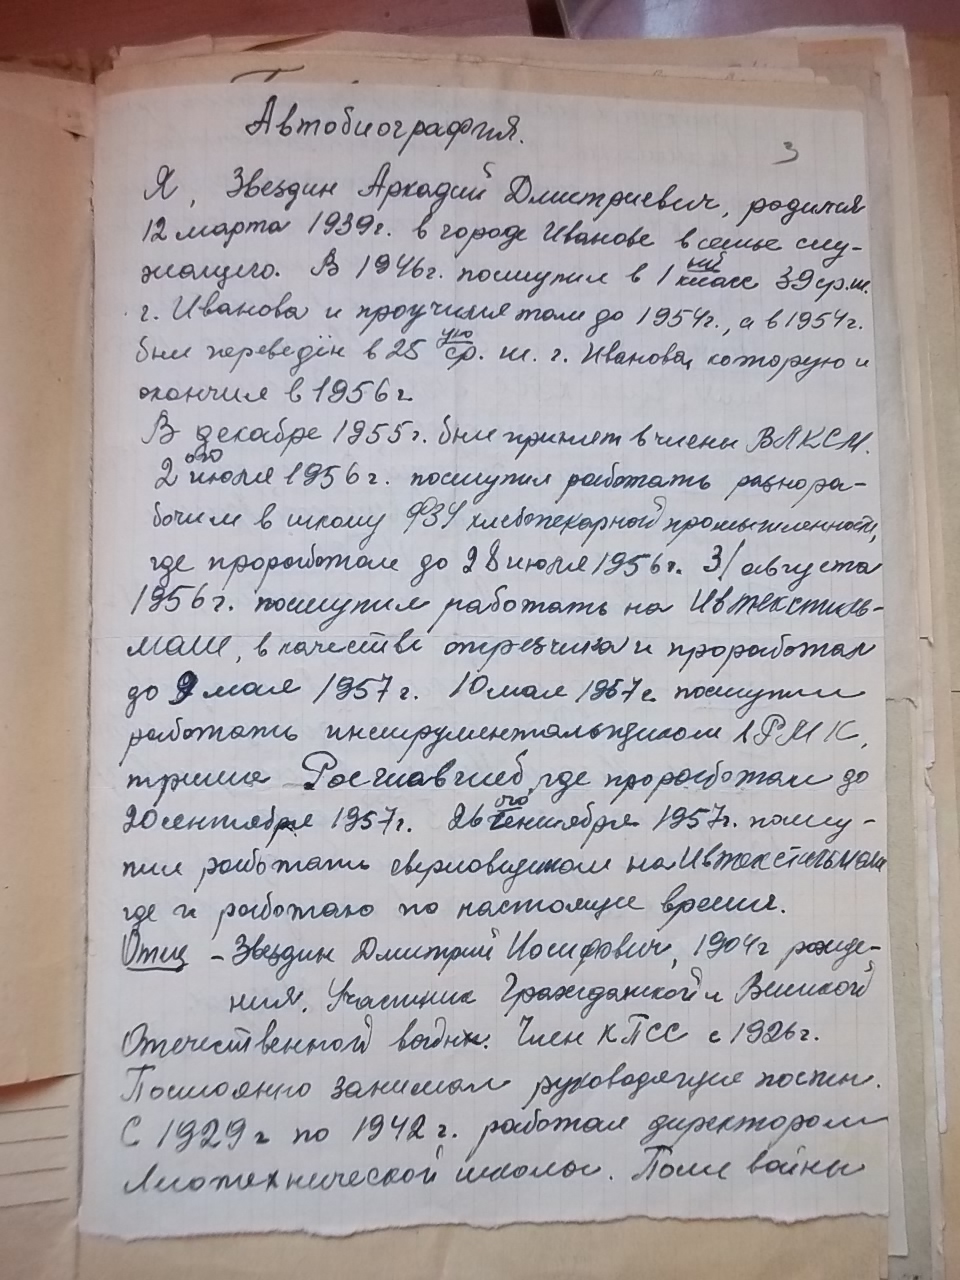 Автобиография.
3
Я, Звездин Аркадий Дмитриевич, родился
12 марта 1939г. в городе Иванове в семье слу-
жащего. В 1946г. поступил в 1ый класс 39 ср.ш.
г. Иванова и проучился там до 1954г., а в 1954г.
был переведён в 25ую ср. ш. г. Иванова, которую и
окончил в 1956г.
В декабре 1955г. был принят в члены ВЛКСМ.
2ого июля 1956г. поступил работать разнора-
бочим в школу ФЗУ хлебопекарной промышленности,
где проработал до 28 июля 1956г. 31 августа
1956г. поступил работать на Ивтекстиль-
маш, в качестве отрезчика и проработал
до 9 мая 1957г. 10 мая 1957г. поступил
работать инструментальщиком РМК,
треста Росглавхлеб, где проработал до
20 сентября 1957г. 26ого сентября 1957г. посту-
пил работать сверловщиком на Ивтекстильмаш
где и работаю по настоящее время.
Отец - Звездин Дмитрий Иосифович, 1904г рожде-
ния. Участник Гражданской и Великой
Отечественной войны. Член КПСС с 1926г.
Постоянно занимал руководящие посты.
С 1929г по 1942г. работал директором
школы. После войны